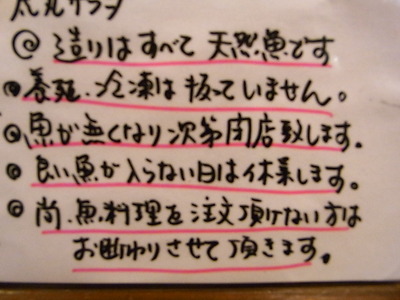 大丸サラダ
◎造りはすべて天然魚です
◎養殖.冷凍は扱っていません。
◎魚が無くなり次第閉店致します.
◎良い魚が入らない日は休業します。
◎尚.魚料理を注文頂けない方は
お断わりさせて頂きます。